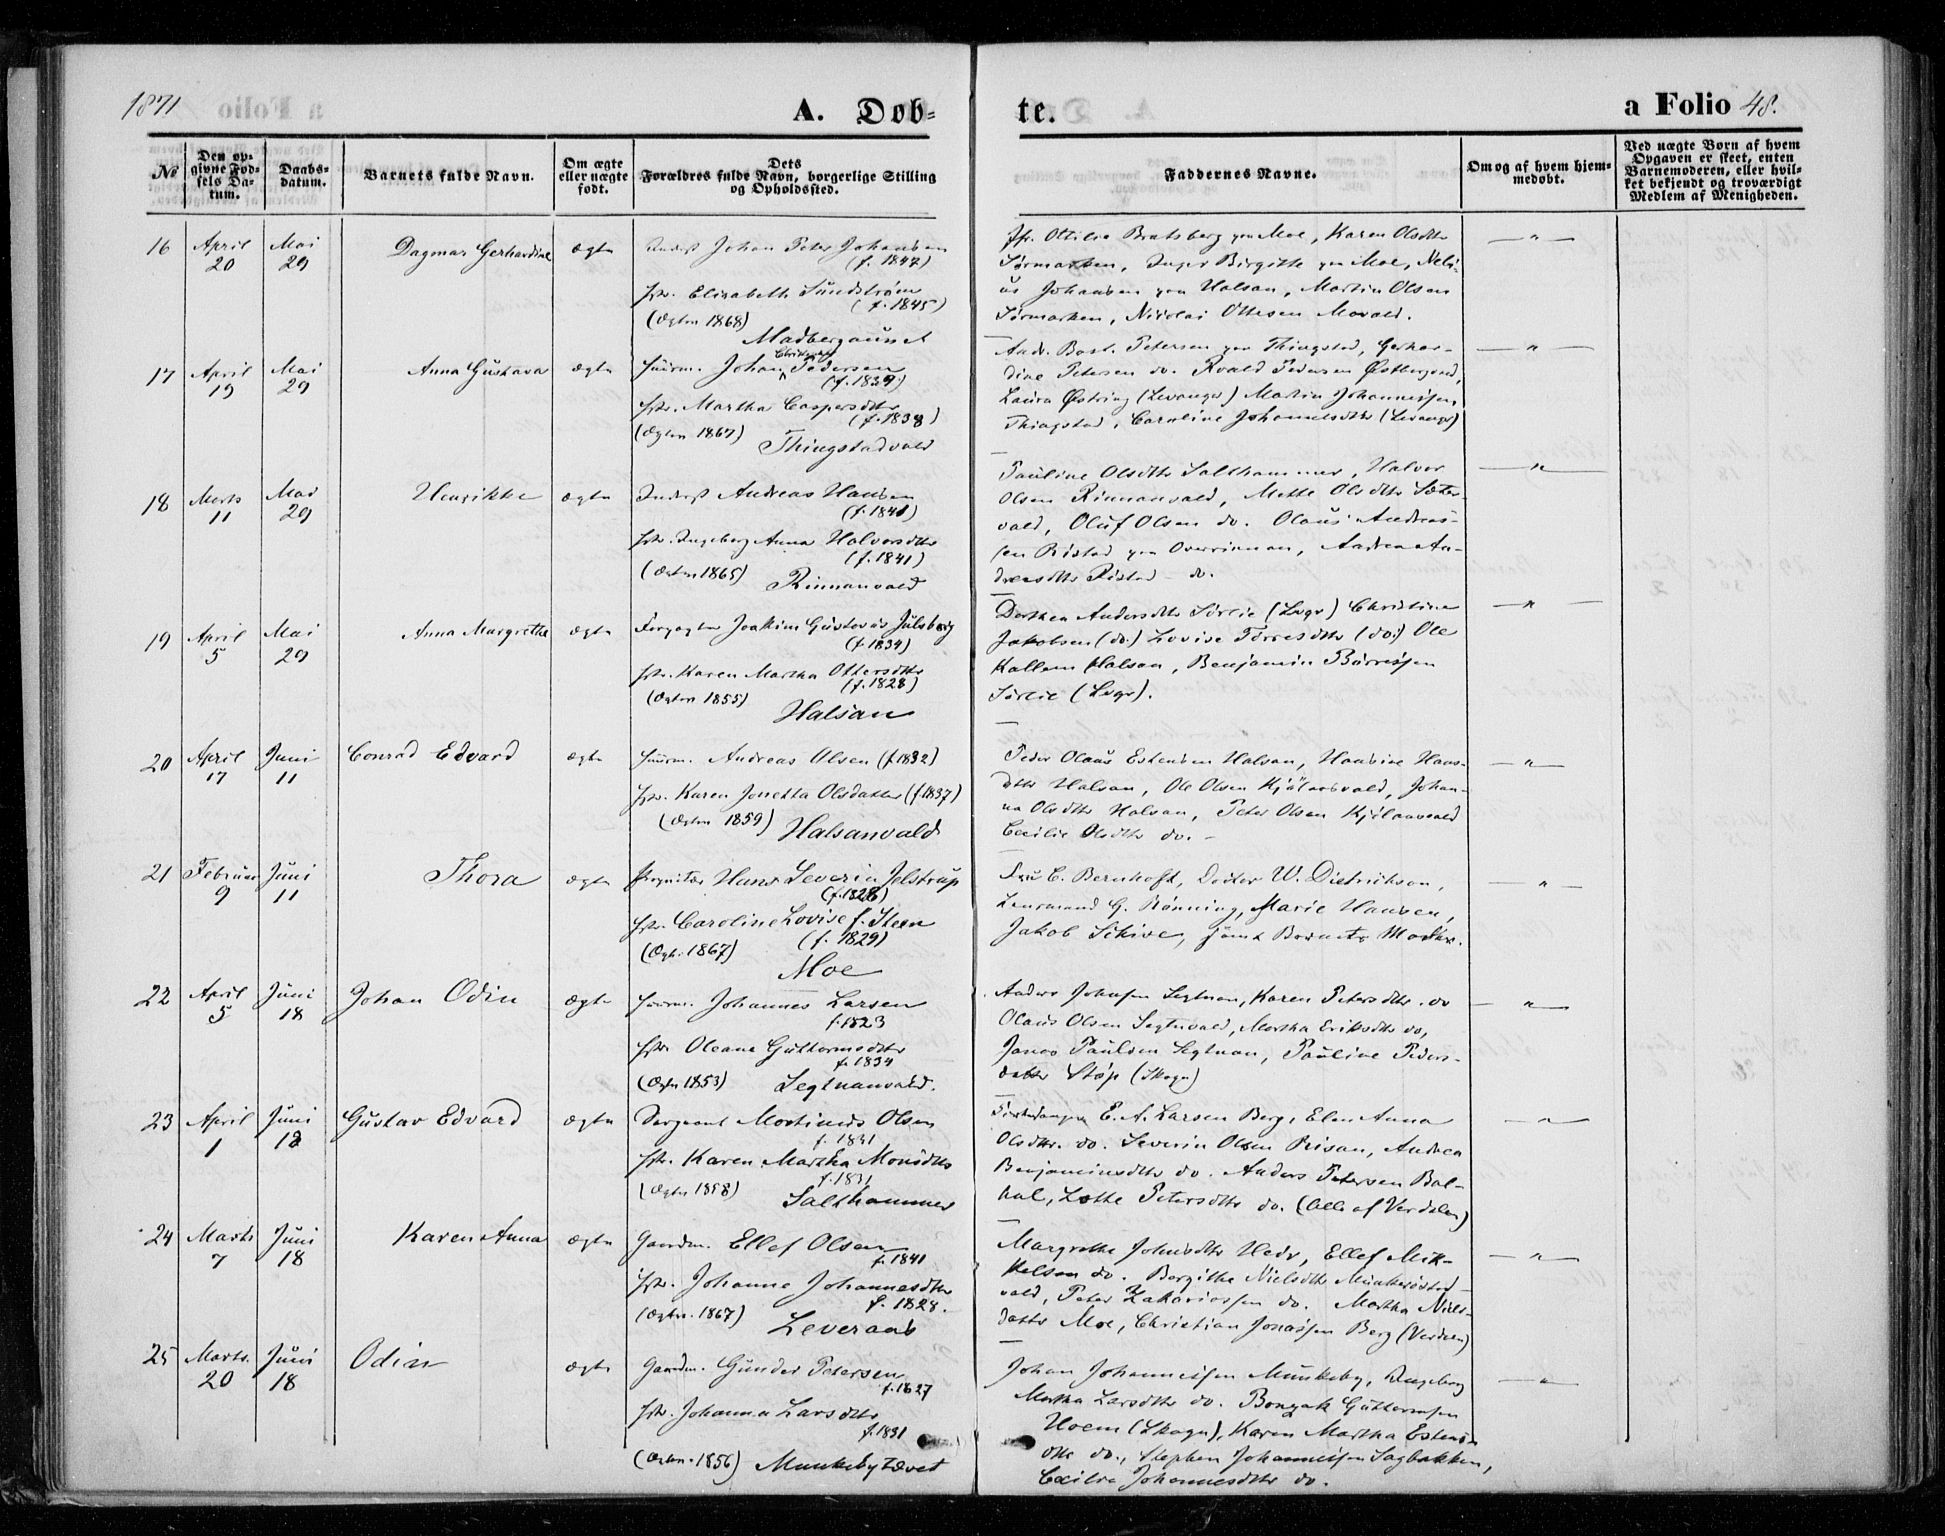 1871
A. Døb-
te.
a Folio 48.
№
Den op-
givne Fød-
sels Da-
tum.
Daabs-
datum.
Barnets fulde Navn.
Om ægte
eller uægte
født.
Dets
Forældres fulde Navn, borgerlige Stilling
og Opholdssted.
Faddernes Navne.
Om og af hvem hjem-
medøbt.
Ved uægte Børn af hvem
Opgaven er skeet, enten
Barnemoderen, eller hvil-
ket bekjendt og troværdigt
Medlem af Menigheden.
16 April 20 Mai 29 Dagmar Gerhardine ægte
Inderst Johan Peter Johansen
(f. 1847)
Elisabeth Sundstrøm
(f. 1845)
(Ægtev. 1868)
Madbergaunet
Ottilia Bratsberg Moe, Karen Olsdtr
Sørmarken, Inger Birgitte Moe, Neli-
us Johansen Halsan, Martin Olsen
Sørmarken, Nicolai Ottesen Movald.
17 April 19 Mai 29 Anna Gustava ægte
Huusm. Johan Christian Pedersen
(f. 1839)
Martha Caspersdtr
(f. 1838)
(Ægtev 1867)
Thingstadvald
Petersen Thingstad, Gerhar-
dine Petersen do. Roald Pedersen
Laura Østring (Levanger) Martin Johannessen
Thingstad, Caroline Johannesdtr (Levanger)
18 Marts 11 Mai 29 Henrikke ægte
Inderst Andreas Hansen
(f. 1841)
Ingeborg Anna Halvorsdtr
(f. 1841)
(Ægtev. 1865)
Rinnanvald
Pauline Olsdtr Salthammer, Halvor
Olsen Rinnanvald, Mette Olsdtr Sæter-
vald, Oluf Olsen do. Olaus Andreas-
sen Ristad Overrinnan, Andrea An-
dreasdtr Ristad do.
19 April 5 Mai 29 Anna Margrethe ægte
Forpagter Joakim Gustavus Julsborg
(f. 1834)
Karen Martha Ottersdtr
(f. 1828)
(Ægtev 1855)
Halsan
Dorthea Andersdtr Sørlie (Levgr) Christine
Jakobsen (do.) Lovise Torresdtr (do.) Ole
Kallem Halsan, Benjamin Børressen
Sørlie (Levgr).
20 April 17 Juni 11 Conrad Edvard ægte
Huusm. Andreas Olsen (f. 1832)
Karen Jonetta Olsdatter (f. 1837)
(Ægtev 1859)
Halsanvald
Peder Olaus Estensen Halsan, Hansine Hans-
dtr Halsan, Ole Olsen Kjølaasvald, Johan-
na Olsdtr Halsan, Peter Olsen Kjølaasvald
Cecilie Olsdtr do.
21 Februar 9 Juni 11 Thora ægte
Proprietær Hans Severin Jelstrup
(f. 1828)
Caroline Lovise f. Steen
(f. 1829)
(Ægtev. 1867)
Moe
Fru C. Bernhoft, Doctor W. Dietrichson,
Lensmand G. Rønning, Marie Hansen,
Jakob Schive, samt Barnets Moder.
22 April 5 Juni 18 Johan Odin ægte
Huusm. Johannes Larsen
f. 1823
Oleana Guttormsdtr
f. 1834
(Ægtev 1853)
Segtnanvald.
Anders Johnsen Segtnan, Karen Petersdtr. do
Olaus Olsen Segtnvald, Martha Eriksdtr do,
Jonas Paulsen Segtnan, Pauline Peders-
datter Støp (Skogn)
23 April 1 Juni 18 Gustav Edvard ægte
Sergeant Martinus Olsen
f. 1831
Karen Martha Monsdtr
f. 1831
(Ægtev 1858)
Salthammer
E. A. Larsen Berg, Elen Anna
Olsdtr. do. Severin Olsen Risan, Andrea
Benjaminsdtr do. Anders Petersen Bal-
hal, Lotte Petersdtr do. (Alle af Verdalen)
24 Marts 7 Juni 18 Karen Anna ægte
Gaardm. Ellef Olsen
f. 1841
Johanna Johannesdtr
f. 1828.
(Ægtev. 1867)
Leveraas
Margrethe Johnsdtr Heir, Ellef Mik-
kelsen do. Bergitha Nielsdtr Munkerøstad-
vald, Peter Zakariassen do. Martha Niels-
datter Moe, Christian Jonassen Berg (Verdalen)
25 Marts 20 Juni 18 Odin ægte
Gaardm. Gunder Petersen
f. 1827
Johanna Larsdtr
f. 1831
(Ægtev. 1856)
Munkebytævet
Johan Johannessen Munkeby, Ingeborg
Martha Larsdtr do. Guttormsen
Hoem (Skogn), Karen Martha Estens-
dtr do., Stephen Johannessen Sagbakken,
Johannesdtr do.